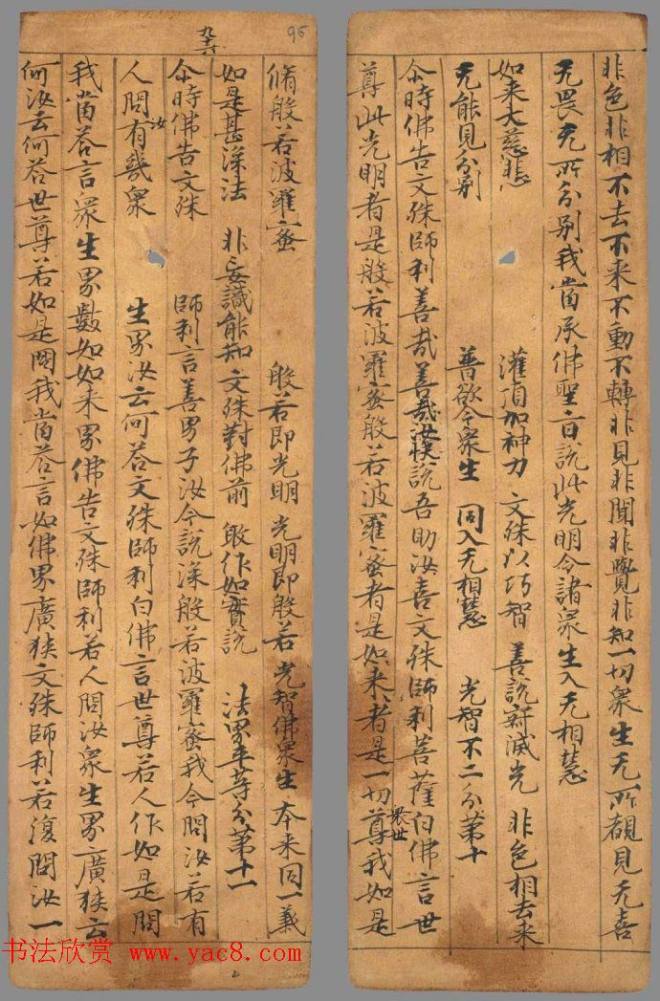 非色非相不去不来不動不轉非見非聞非覺非知一切衆生无所覩見无喜
无畏无所分别我當承佛聖旨說此光明令諸衆生入无相慧
如来大慈悲 灌頂加神力 文殊以巧智 善說寂滅光 非色相去来
无能見分别 普欲令衆生 同入无相慧 光智不二分第十
尒時佛告文殊師利善哉善哉汝快說吾助汝喜文殊師利菩薩白佛言世
尊此光明者是般若波羅蜜般若波羅蜜者是如来者是一切衆世尊我如是
95
脩般若波羅蜜 般若即光明 光明即般若 光智佛衆生 本来同一義
如是甚深法 非妄識能知 文殊對佛前 敢作如實說 法界平等分第十一
尒時佛告文殊 師利言善男子汝今說深般若波羅蜜我今問汝若有
人問汝有幾衆 生界汝云何荅文殊師利白佛言世尊若人作如是問
我當荅言衆生界數如如来界佛告文殊師利若人問汝衆生界廣狹云
何汝云何荅世尊若如是問我當荅言如佛界廣狹文殊師利若復問汝一
书法欣赏 www.yac8.com